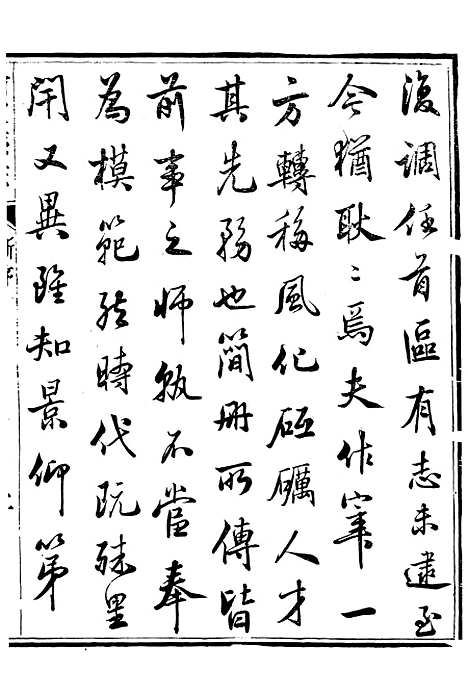 復調任首區有志未逮至
今猶耿〻焉夫作宰一
方轉移風化砥礪人才
其先務也簡册所傳皆
前事之師孰不當奉
為模範然時代既殊里
閈又異雖知景仰第
新序